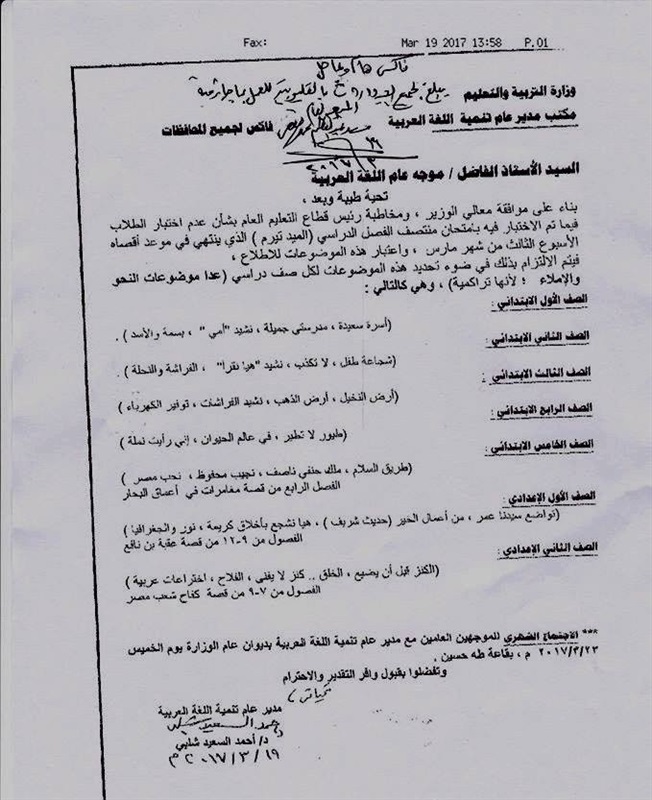 Fax: Mar 19 2017 13:58 P.01
فاكس هام وعاجل
وزارة التربية والتعليم
مكتب مدير عام تنمية اللغة العربية
فاكس لجميع المحافظات
السيد الأستاذ الفاضل / موجه عام اللغة العربية
تحية طيبة وبعد ،
بناء على موافقة معالي الوزير ، ومخاطبة رئيس قطاع التعليم العام بشأن عدم اختبار الطلاب
فيما تم الاختبار فيه بامتحان منتصف الفصل الدراسي (الميد تيرم ) الذي ينتهي في موعد أقصاه
الأسبوع الثالث من شهر مارس ، واعتبار هذه الموضوعات للاطلاع ،
فيتم الالتزام بذلك في ضوء تحديد هذه الموضوعات لكل صف دراسي (عدا موضوعات النحو
والإملاء ؛ لأنها تراكمية) ، وهي كالتالي :
الصف الأول الابتدائي :
(أسرة سعيدة ، مدرستي جميلة ، نشيد "أمي " ، بسمة والأسد ) .
الصف الثاني الابتدائي :
(شجاعة طفل ، لا تكذب ، نشيد "هيا نقرأ" ، الفراشة والنحلة ) .
الصف الثالث الابتدائي :
(أرض النخيل ، أرض الذهب ، نشيد الفراشات ، توفير الكهرباء )
الصف الرابع الابتدائي :
(طيور لا تطير ، في عالم الحيوان ، إني رأيت نملة )
الصف الخامس الابتدائي :
(طريق السلام ، ملك حفني ناصف ، نجيب محفوظ ، نحب مصر )
الفصل الرابع من قصة مغامرات في أعماق البحار
الصف الأول الإعدادي :
(تواضع سيدنا عمر ، من أعمال الخير (حديث شريف ) ، هيا نشجع بأخلاق كريمة ، نور والجغرافيا )
الفصول من ٩-١٢ من قصة عقبة بن نافع
الصف الثاني الإعدادي :
(الكنز قبل أن يضيع ، الخلق .. كنز لا يفنى ، الفلاح ، اختراعات عربية )
الفصول من ٧-٩ من قصة كفاح شعب مصر
*** الاجتماع الشهري للموجهين العامين مع مدير عام تنمية اللغة العربية بديوان عام الوزارة يوم الخميس
٢٠١٧/٣/٢٣ م ، بقاعة طه حسين .
وتفضلوا بقبول وافر التقدير والاحترام
مدير عام تنمية اللغة العربية
د/ أحمد السعيد شلبي
٢٠١٧/٣/١٩ م